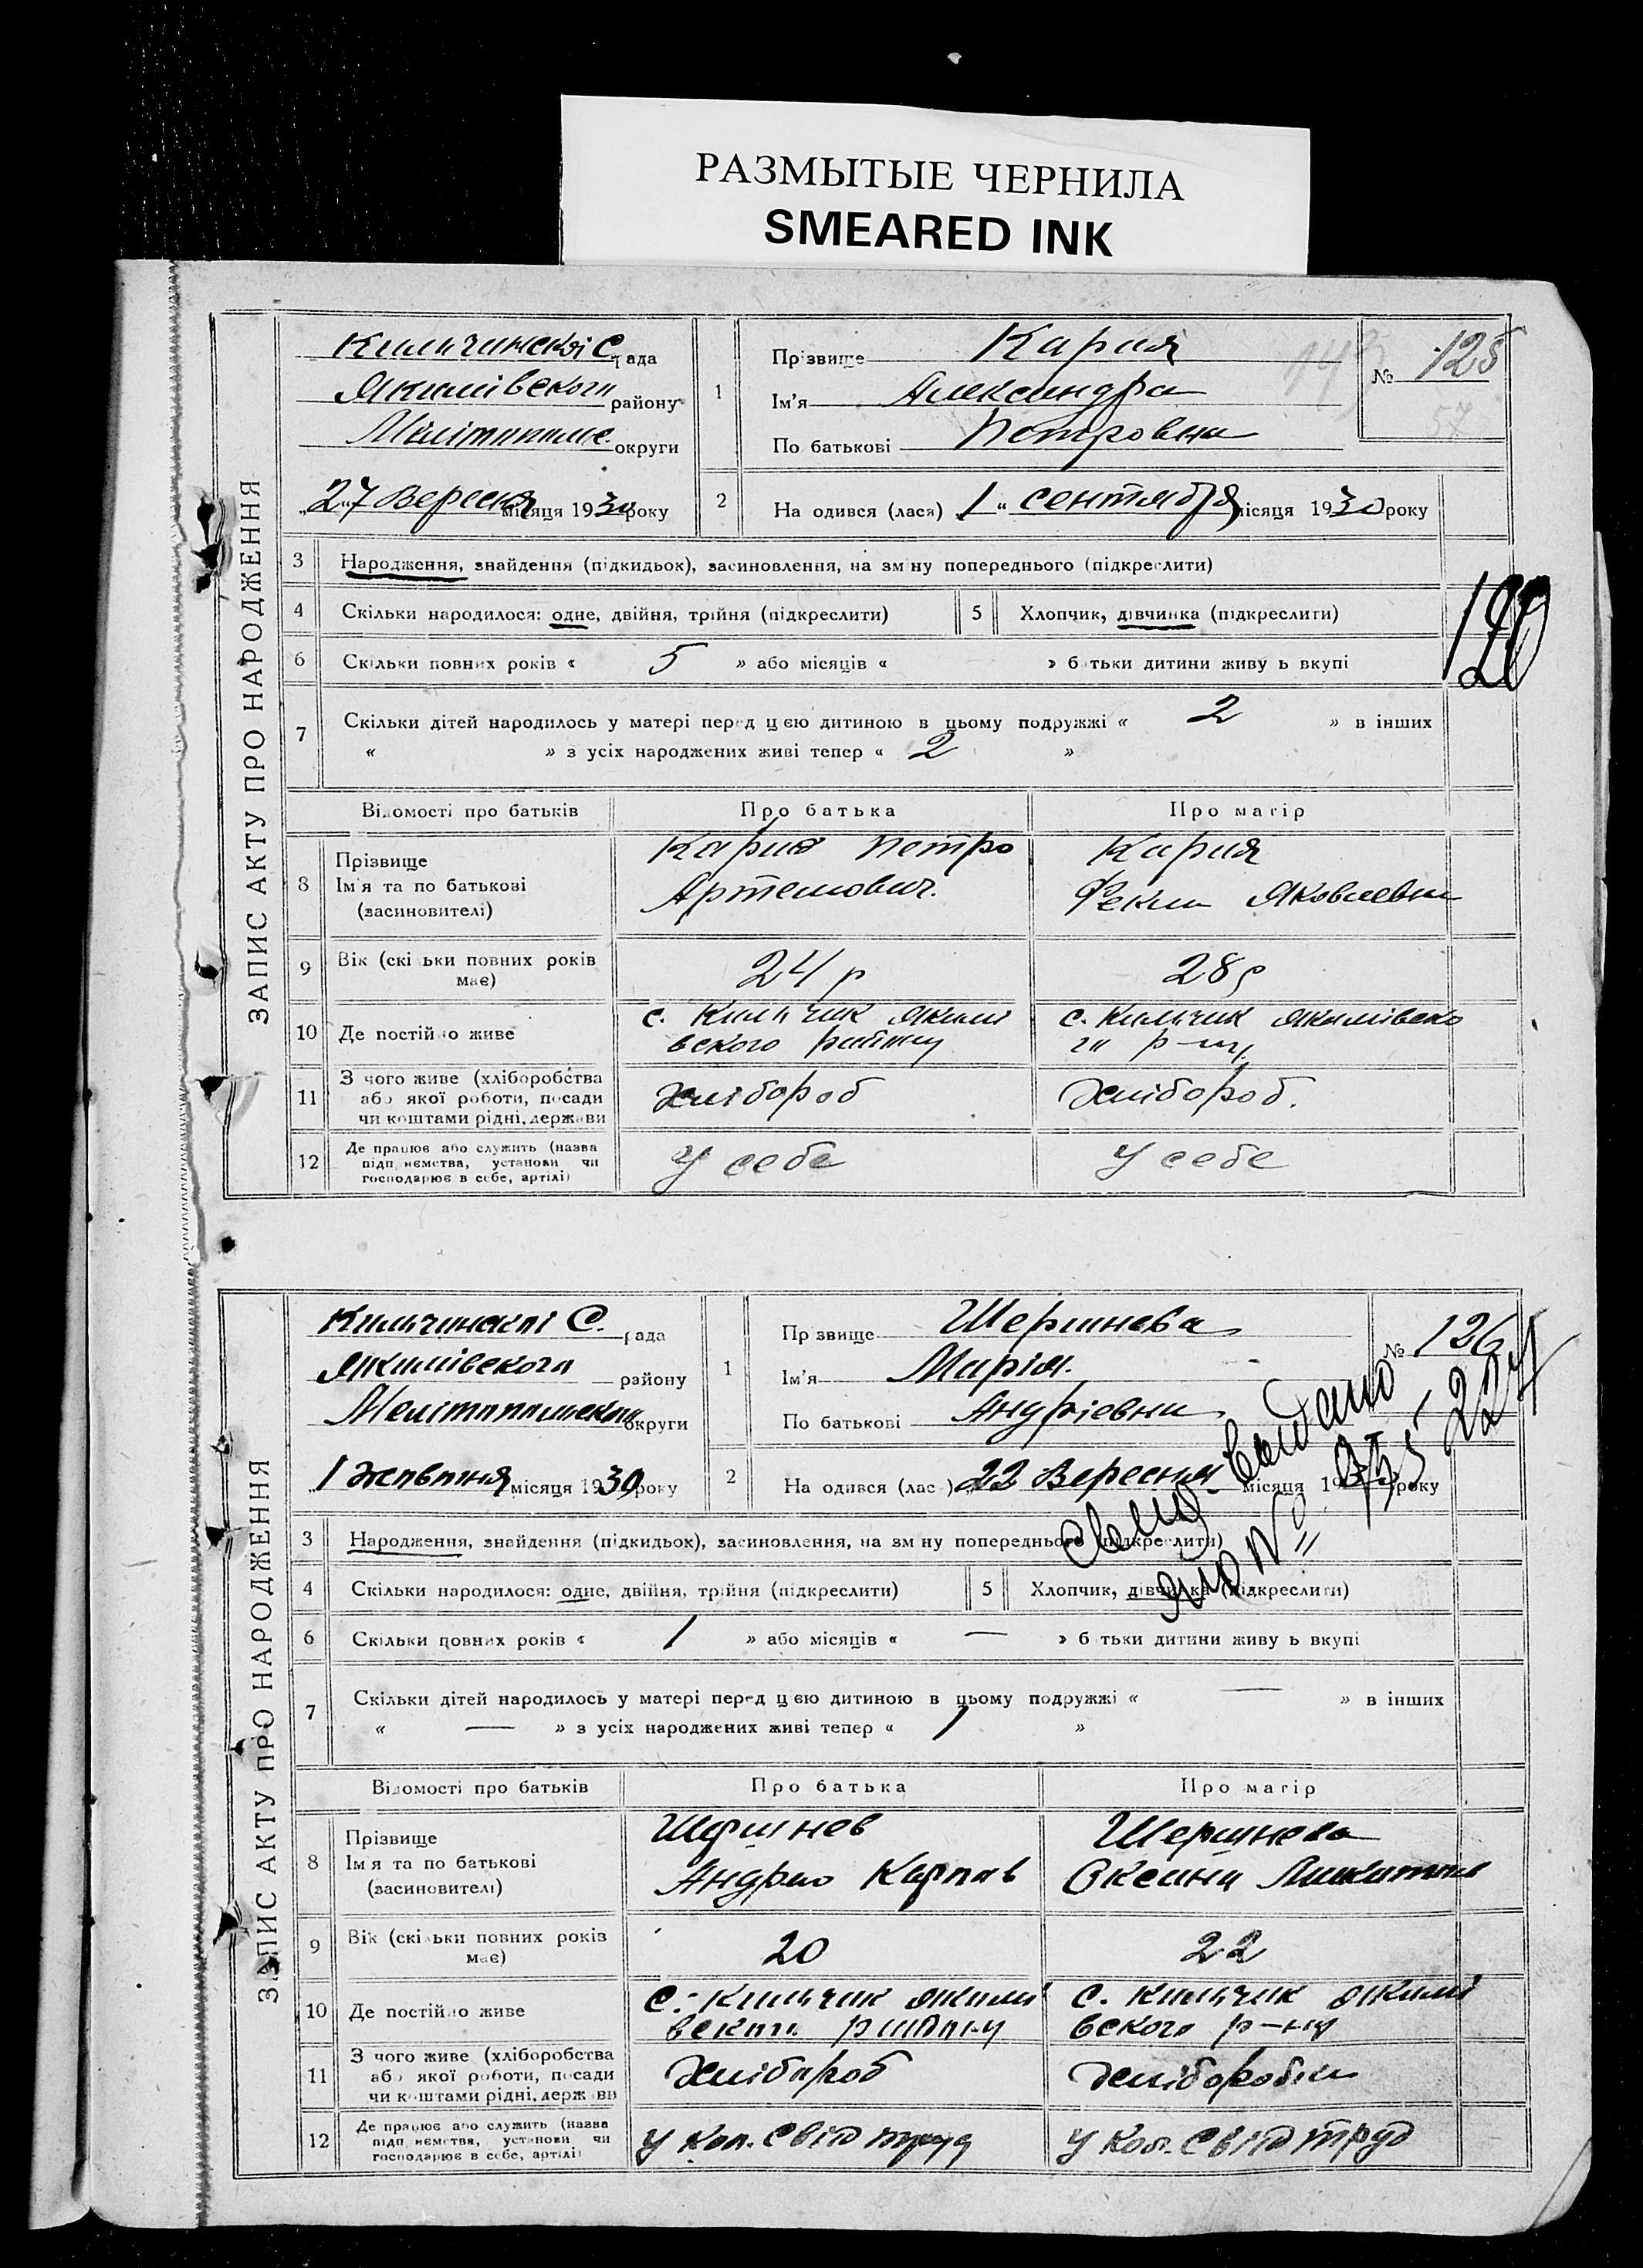 РАЗМЫТЫЕ ЧЕРНИЛА
SMEARED INK
ЗАПИС АКТУ ПРО НАРОДЖЕННЯ
Кильчинскоі С. рада
Якимівского району
Мелітопольс. округи
„27" Вересня місяця 1930 року
1
Прізвище Кария
Ім'я Александра
По батькові Петровна
№ 125
57
2
На одився (лася) „1" сентября місяця 1930 року
3 Народження, знайдення (підкидьок), засиновлення, на зм ну попереднього (підкреслити)
4 Скільки народилося: одне, двійня, трійня (підкреслити)
5 Хлопчик, дівчинка (підкреслити)
120
6 Скільки повних років « 5 » або місяців « » б тьки дитини живу ь вкупі
7 Скільки дітей народилось у матері перед цією дитиною в цьому подружжі « 2 » в інших
« » з усіх народжених живі тепер « 2 »
Відомості про батьків Про батька Про матір
8 Прізвище
Ім'я та по батькові
(засиновителі)
Кария Петро
Артемович.
Кария
Фекла Яковлевна
9 Вік (скільки повних років
має)
24 р
28 р
10 Де постійно живе
с. Кильчик Якимі
вского району
с. Кильчик Якимівско
го р-ну.
11 З чого живе (хліборобства
або якої роботи, посади
чи коштами рідні, держави
Хлібороб
Хлібороб.
12 Де працює або служить (назва
підприємства, установи чи
господарює в себе, артілі)
У себе
У себе
ЗАПИС АКТУ ПРО НАРОДЖЕННЯ
Кильчинскоі С. рада
Якимівского району
Мелітопольскои округи
„1 жовтня місяця 1930 року
1
Пр звище Шершнева
Ім'я Марія.
По батькові Андріевна
№ 126
2
На одився (лас ) „22 Вересня місяця 1930 року
3 Народження, знайдення (підкидьок), засиновлення, на зм ну попереднього (підкреслити)
4 Скільки народилося: одне, двійня, трійня (підкреслити)
5 Хлопчик, дівчинка (підкреслити)
выдано
№
6 Скільки повних років « 1 » або місяців « — » б тьки дитини живу ь вкупі
7 Скільки дітей народилось у матері перед цією дитиною в цьому подружжі « — » в інших
« — » з усіх народжених живі тепер « 1 »
Відомості про батьків Про батька Про матір
8 Прізвище
Ім'я та по батькові
(засиновителі)
Шершнев
Андрио Карпов
Шершнева
Оксана
9 Вік (скільки повних років
має)
20
22
10 Де постійно живе
с. Кильчик Якимі
вского району
с. Кильчик Якимі
вского р-ну
11 З чого живе (хліборобства
або якої роботи, посади
чи коштами рідні, держави
Хлібороб
Хліборобка
12 Де працює або служить (назва
підприємства, установи чи
господарює в себе, артілі)
У Кол. Свід труд
У Кол. Свід Труд